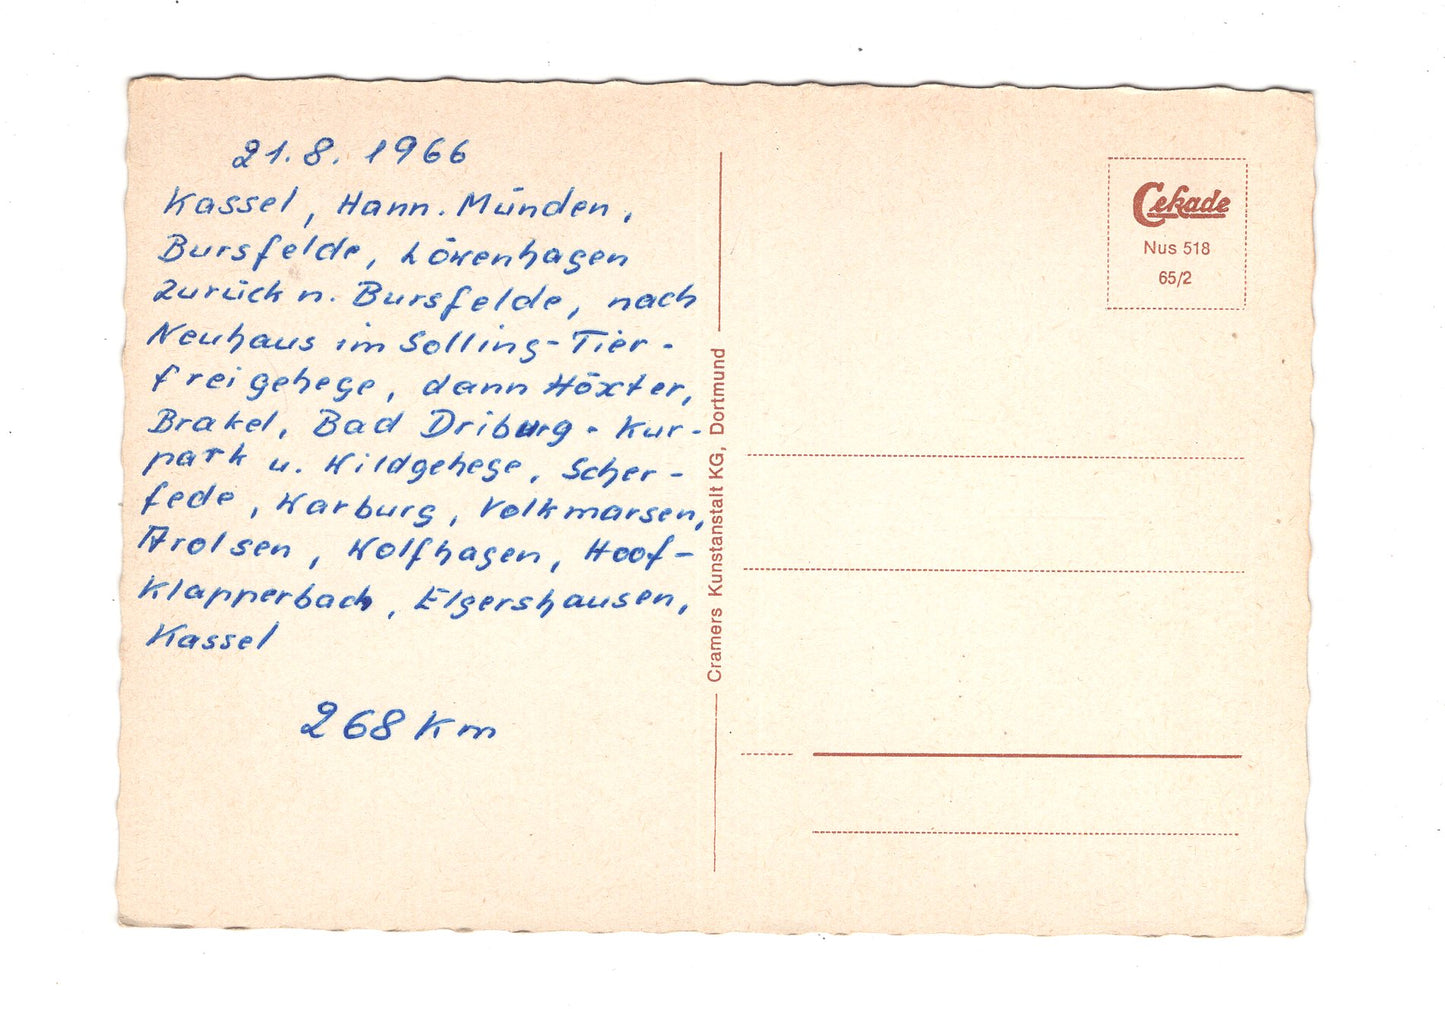 21.8.1966
Kassel, Hann. Münden,
Bursfelde, Löwenhagen
zurück n. Bursfelde, nach
Neuhaus im Solling-Tier-
freigehege, dann Höxter,
Brakel, Bad Driburg - Kur-
park u. Wildgehege, Scher-
fede, Warburg, Volkmarsen,
Arolsen, Wolfhagen, Hoof-
Klapperbach, Elgershausen,
Kassel
268 Km
Cramers Kunstanstalt KG, Dortmund
Cekade
Nus 518
65/2